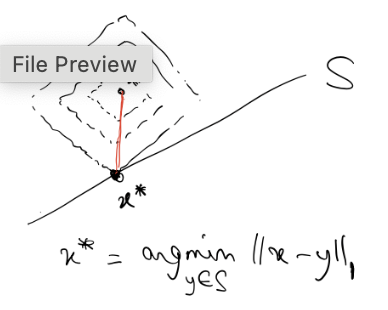 File Preview
S
x*
x* = argmin ||x - y||₁
y∈S